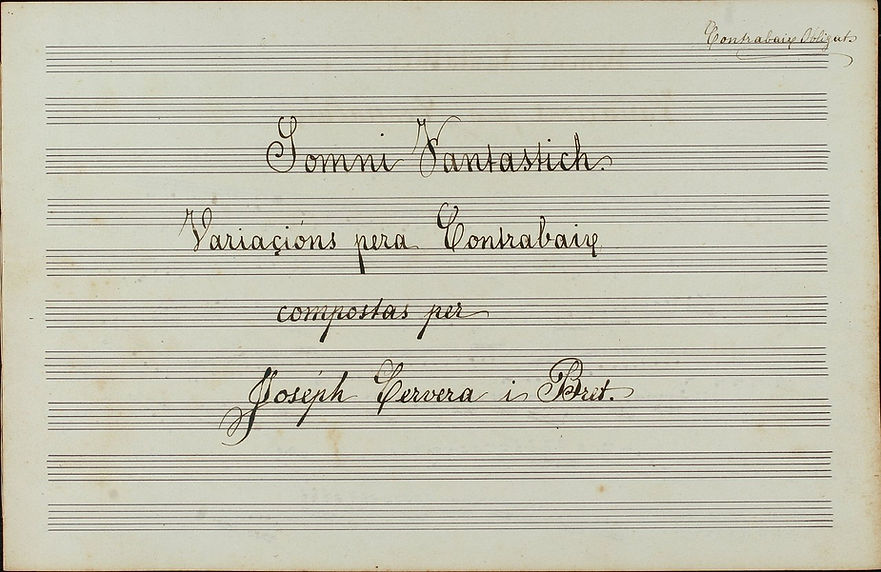 Contrabaix Obligat.
Somni Fantastich.
Variaçións pera Contrabaix
compostas per
Joséph Cervera i Bret.